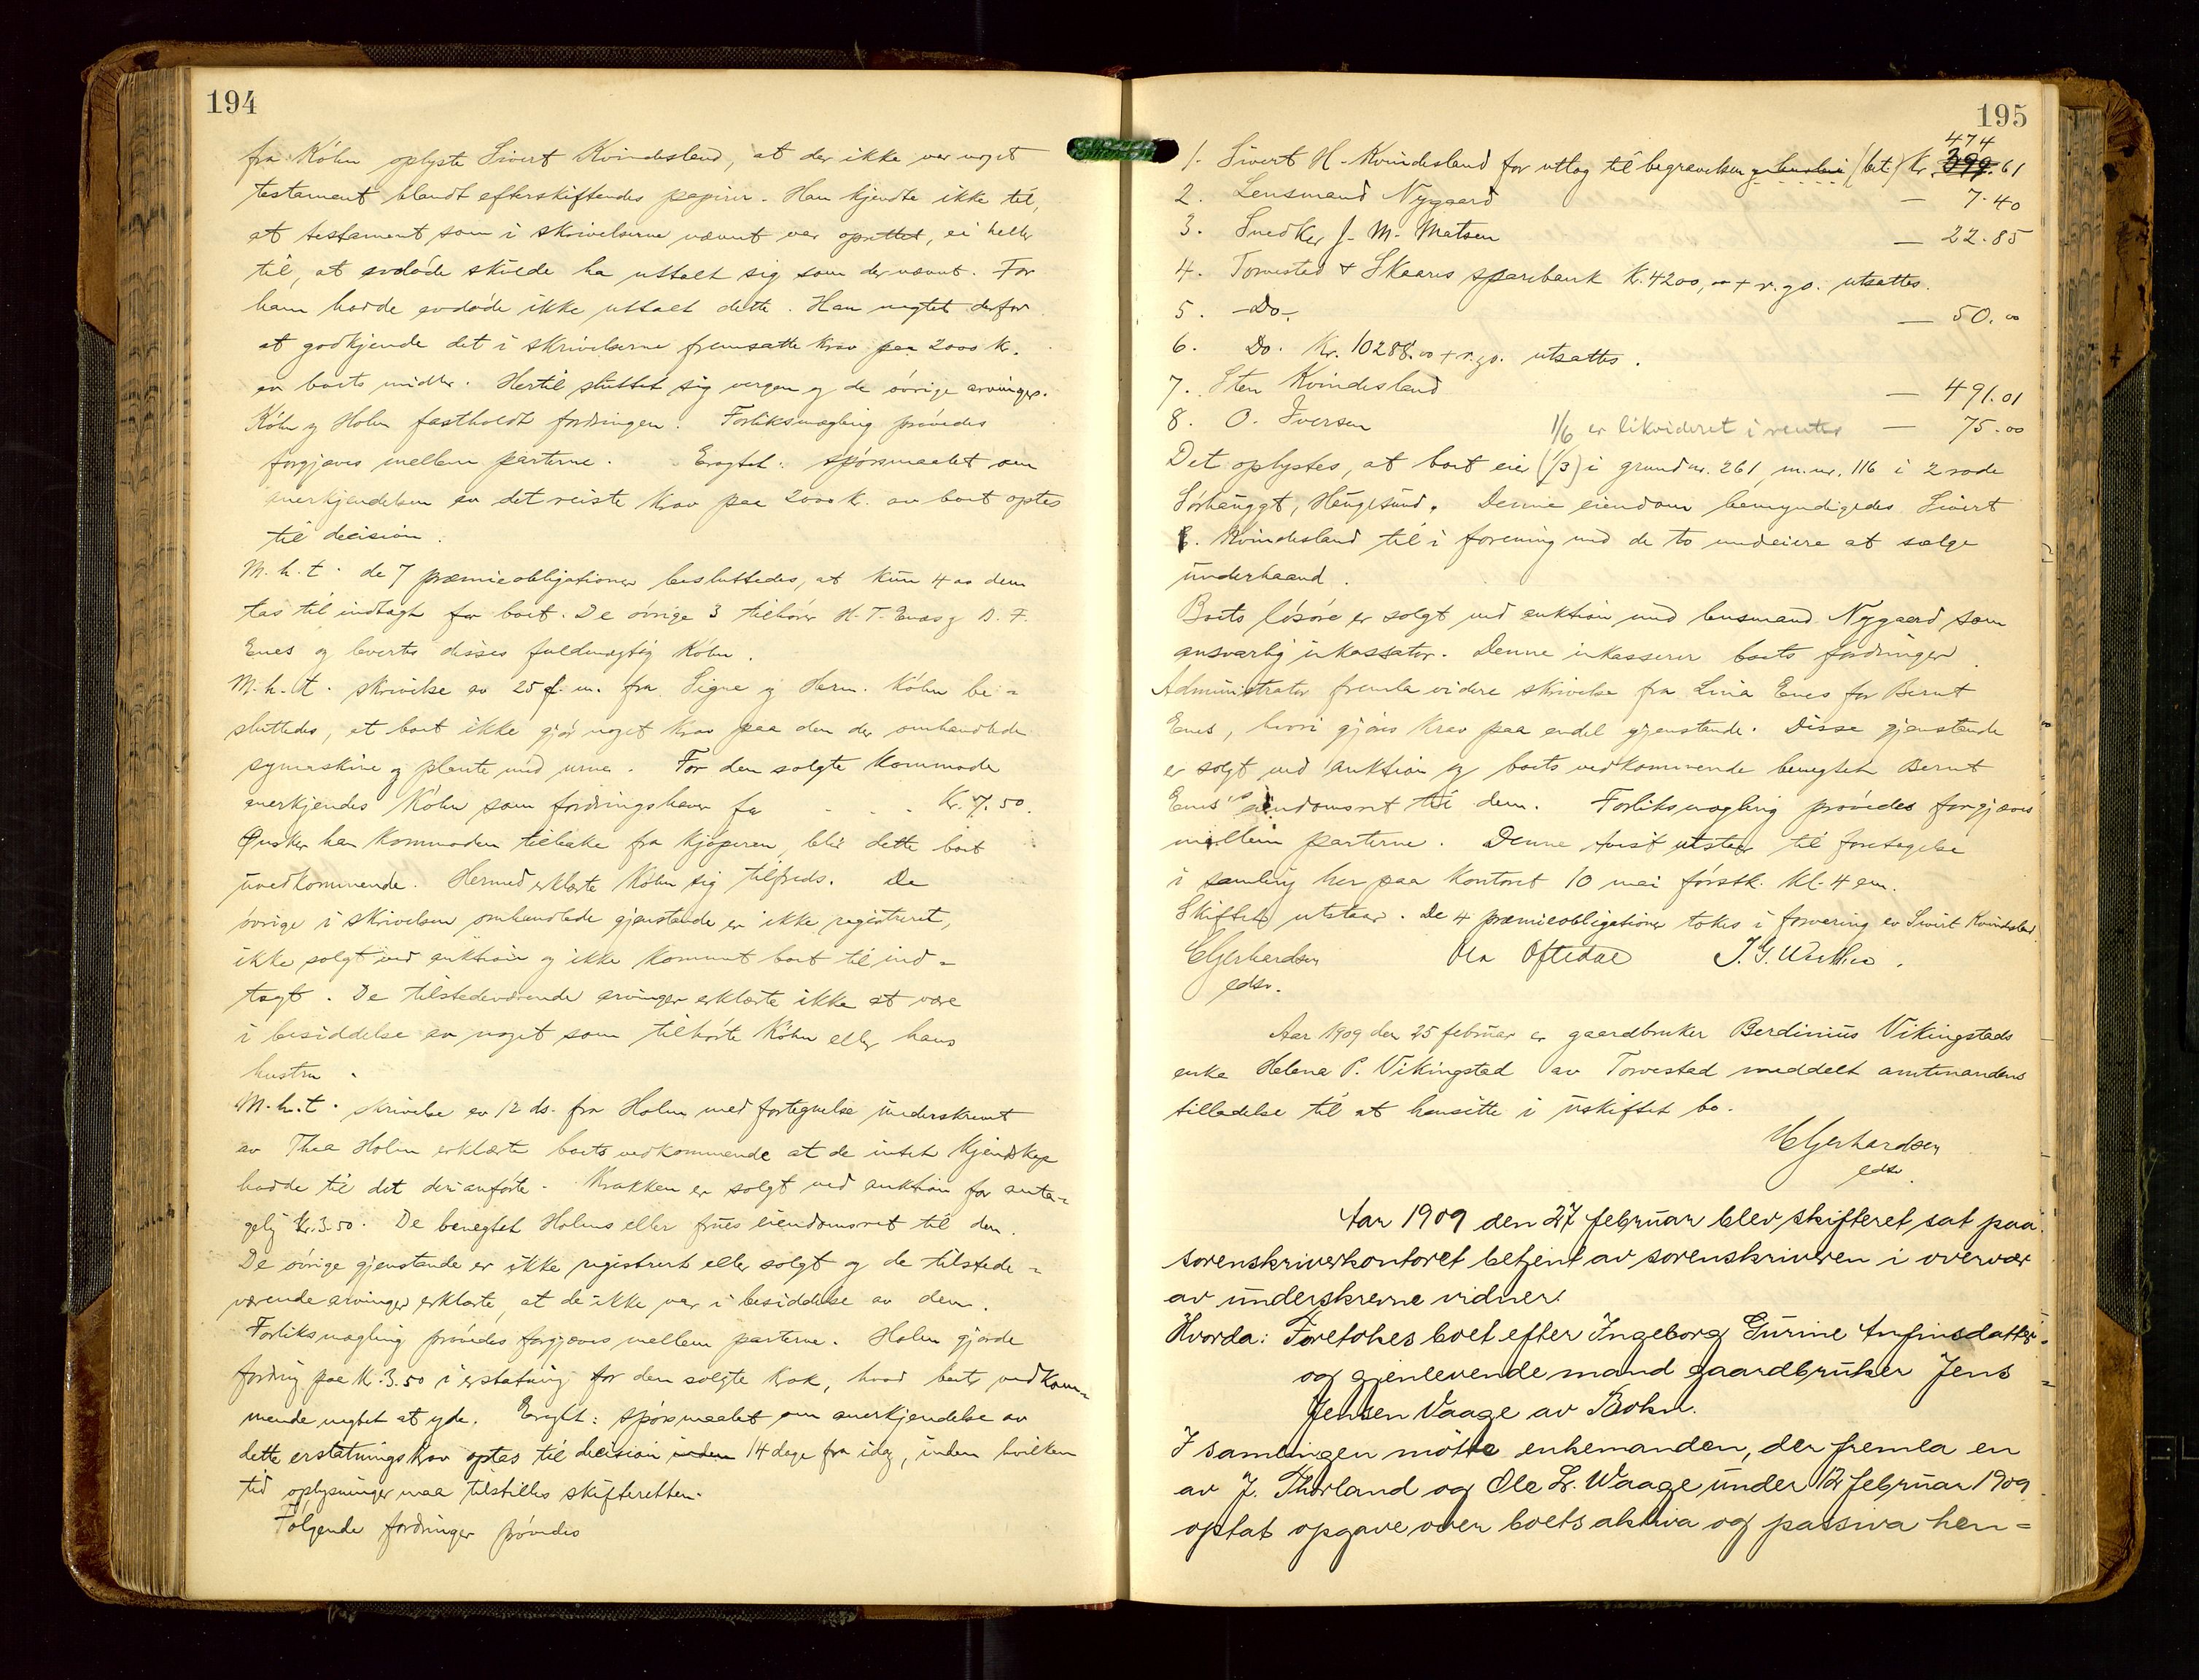 194
fra Köhn oplyste Sivert Kvindesland, at der ikke var noget
testament blandt efterskiftendes papirer. Han kjendte ikke til,
at testament som i skrivelserne nævnt var oprettet, ei heller
til, at avdøde skulde ha uttalt sig som der nævnt. For
ham hadde avdøde ikke uttalt dette. Han negtet derfor
at godkjende det i skrivelserne fremsatte krav paa 2000 kr.
av boets midler. Hertil sluttet sig vergen og de övrige arvinger.
Köhn og Holm fastholdt fordringen. Forliksmægling prövedes
forgjæves mellem parterne. Eragtet: Spörsmaalet om
anerkjendelsen av det reiste krav paa 2000 kr. av boet optes
til decision.
M.h.t. de 7 præmieobligationer besluttedes, at kun 4 av dem
tas til indtægt for boet. De övrige 3 tilhörer H. T. Enes og B. F.
Enes og levertes disses fuldmægtig Köhn.
M.h.t. skrivelse av 25 f.m. fra Signe og Herm. Köhn be-
sluttedes, at boet ikke gjör noget krav paa den der omhandlede
symaskine og plante med urne. For den solgte kommode
anerkjendes Köhn som fordringshaver for - - - Kr. 7.50.
Ønsker han kommoden tilbake fra kjöperen, blir dette boet
uvedkommende. Hermed erklærte Köhn sig tilfreds. De
övrige i skrivelsen omhandlede gjenstande er ikke registreret,
ikke solgt ved auktion og ikke kommet boet til ind-
tægt. De tilstedeværende arvinger erklærte ikke at være
i besiddelse av noget som tilhörte Köhn eller hans
hustru.
M.h.t. skrivelse av 12 ds. fra Holm med fortegnelse underskrevt
av Thea Holm erklærte boets vedkommende at de intet kjendskap
hadde til det der anförte. Krakken er solgt ved auktion for anta-
gelig kr. 3.50. De benegtet Holms eller frues eiendomsret til den.
De övrige gjenstande er ikke registrert eller solgt og de tilstede-
værende arvinger erklærte, at de ikke var i besiddelse av dem.
Forliksmægling prövedes forgjæves mellem parterne. Holm gjorde
fordring paa kr. 3.50 i erstatning for den solgte krak, hvad boets vedkom-
mende negtet at yde. Eragtet: Spörsmaalet om anerkjendelse av
dette erstatningskrav optas til decision inden 14 dage fra idag, inden hvilken
tid oplysninger maa tilstilles skifteretten.
Følgende fordringer prövedes
195
474
1. Sivert H. Kvindesland for utlæg til begravelsen (bet.) kr. 399.61
2. Lensmand Nygaard — 7.40
3. Snedker J. M. Matsen — 22.85
4. Torvestad & Skaares sparebank kr. 4200,00 + r. go. utsattes.
5. -Do- — 50.00
6. Do. kr. 10288.00 + r. go. utsattes.
7. Sten Kvindesland — 491.01
8. O. Iversen — 75.00
1/6 er likvideret i renter
Det oplystes, at boet eier (1/3) i grundnr. 261, m.nr. 116 i 2 rode
Sörhaugt, Haugesund. Denne eiendom bemyndigedes Sivert
Kvindesland til i forening med de to medeiere at sælge
underhaand.
Boets lösöre er solgt ved auktion med lensmand Nygaard som
ansvarlig inkassator. Denne inkasserer boets fordringer.
Administrator fremla videre skrivelse fra Lina Enes for Bernt
Enes, hvori gjöres krav paa endel gjenstande. Disse gjenstande
er solgt ved auktion og boets vedkommende benegtet Bernt
Enes's eiendomsret til dem. Forliksmægling prövedes forgjæves
mellem parterne. Denne tvist utstaar til foretagelse
i samling her paa kontoret 10 mai förstk. kl. 4 em.
Skiftet utstaar. De 4 præmieobligationer tokes i forvaring av Sivert Kvindesland.
E Gerhardsen Ola Oftedal
edsv.
Aar 1909 den 25 februar er gaardbruker Berdinius Vikingstads
enke Helena P. Vikingstad av Torvestad meddelt amtmandens
tilladelse til at hensitte i uskiftet bo.
E Gerhardsen
edsv.
Aar 1909 den 27 februar blev skifteret sat paa
sorenskriverkontoret betjent av sorenskriveren i overvær
av underskrevne vidner.
Hvorda: Foretokes boet efter Ingeborg Gurine Anfinsdatter
og gjenlevende mand gaardbruker Jens
Jensen Vaage av Bokn.
I samlingen mötte enkemanden, der fremla en
av J. Thorland og Ole L. Waage under 12 februar 1909
optat opgave over boets aktiva og passiva hen-